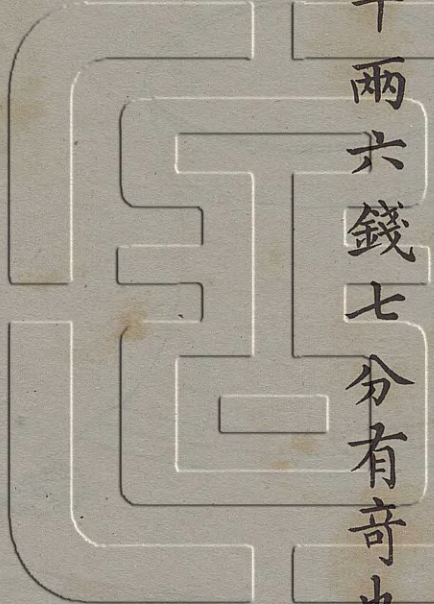 兩六錢七分有竒